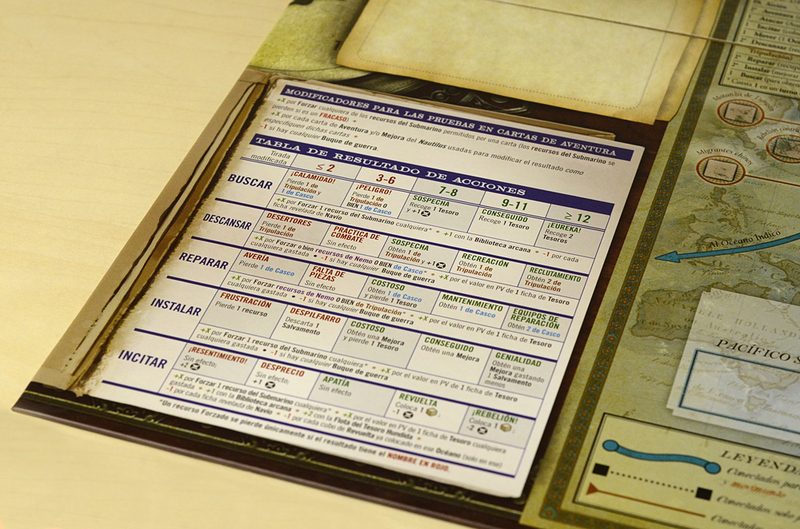 MODIFICADORES PARA LAS PRUEBAS EN CARTAS DE AVENTURA
+X por Forzar cualquiera de los recursos del Submarino permitidos por una carta (los recursos del Submarino se
pierden si es un FRACASO)
+X por cada carta de Aventura y/o Mejora del Nautilus usadas para modificar el resultado como
especifiquen dichas cartas
-1 si hay cualquier Buque de guerra.
TABLA DE RESULTADO DE ACCIONES
Tirada modificada ≤ 2 3-6 7-8 9-11 ≥ 12
BUSCAR
¡CALAMIDAD! Pierde 1 de Tripulación y 1 de Casco
¡PELIGRO! Pierde 1 de Tripulación O BIEN 1 de Casco
SOSPECHA Recoge 1 Tesoro y +1
CONSEGUIDO Recoge 1 Tesoro
¡EUREKA! Recoge 2 Tesoros
+X por Forzar 1 recurso del Submarino cualquiera* • +1 con la Biblioteca arcana • -1 por cada
ficha revelada de Navío
DESCANSAR
DESERTORES Pierde 1 de Tripulación
PRÁCTICA DE COMBATE Sin efecto
SOSPECHA Obtén 1 de Tripulación y +1
RECREACIÓN Obtén 1 de Tripulación
RECLUTAMIENTO Obtén 2 de Tripulación
+X por Forzar o bien recursos de Nemo O BIEN de Casco* • +X por el valor en PV de 1 ficha de Tesoro
cualquiera gastada • -1 si hay cualquier Buque de guerra
REPARAR
AVERÍA Pierde 1 de Casco
FALTA DE PIEZAS Sin efecto
COSTOSO Obtén 1 de Casco y pierde 1 Tesoro
MANTENIMIENTO Obtén 1 de Casco
EQUIPOS DE REPARACIÓN Obtén 2 de Casco
+X por Forzar recursos de Nemo O BIEN de Tripulación* • +X por el valor en PV de 1 ficha de Tesoro
cualquiera gastada • -1 si hay cualquier Buque de guerra
INSTALAR
FRUSTRACIÓN Pierde 1 recurso
DESPILFARRO Descarta 1 Salvamento
COSTOSO Obtén una Mejora y pierde 1 Tesoro
CONSEGUIDO Obtén una Mejora
GENIALIDAD Obtén una Mejora gastando 1 Salvamento menos
+X por Forzar 1 recurso del Submarino cualquiera* • +X por el valor en PV de 1 ficha de Tesoro
cualquiera gastada • -1 si hay cualquier Buque de guerra
INCITAR
¡RESENTIMIENTO! Sin efecto;
DESPRECIO Sin efecto; +1
APATÍA Sin efecto
REVUELTA Coloca 1 -1
¡REBELIÓN! Coloca 1 -2
+X por Forzar 1 recurso del Submarino cualquiera* • +X por el valor en PV de 1 ficha de Tesoro cualquiera
gastada • +1 con la Biblioteca arcana • +2 con la Flota del Tesoro Hundida
-1 por cada ficha revelada de Navío • -1 por cada cubo de Revuelta ya colocado en ese Océano (solo en ese)
*Un recurso Forzado se pierde únicamente si el resultado tiene el NOMBRE EN ROJO.
Al Océano Índico
PACÍFICO S
LEYENDA
Conectados
y movimiento
Conectados
Conectados solo